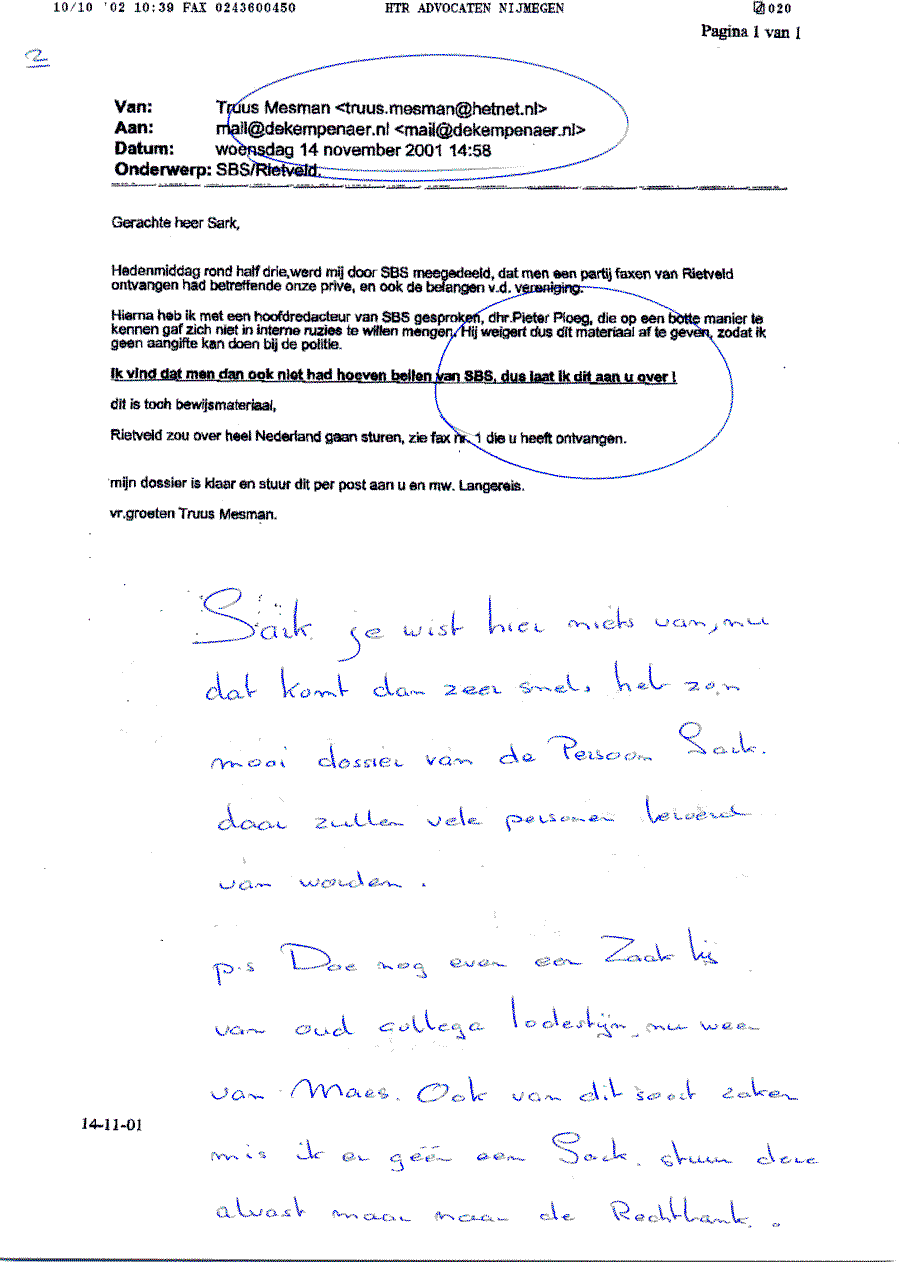 10/10 '02 10:39 FAX 0243600450 HTR ADVOCATEN NIJMEGEN 020
Pagina 1 van 1
2
Van: Truus Mesman <truus.mesman@hetnet.nl>
Aan: mail@dekempenaer.nl <mail@dekempenaer.nl>
Datum: woensdag 14 november 2001 14:58
Onderwerp: SBS/Rietveld.
Gerachte heer Sark,
Hedenmiddag rond half drie,werd mij door SBS meegedeeld, dat men een partij faxen van Rietveld
ontvangen had betreffende onze prive, en ook de belangen v.d. vereniging.
Hierna heb ik met een hoofdredacteur van SBS gesproken, dhr.Pieter Ploeg, die op een botte manier te
kennen gaf zich niet in interne ruzies te willen mengen. Hij weigert dus dit materiaal af te geven, zodat ik
geen aangifte kan doen bij de politie.
Ik vind dat men dan ook niet had hoeven bellen van SBS, dus laat ik dit aan u over !
dit is toch bewijsmateriaal,
Rietveld zou over heel Nederland gaan sturen, zie fax nr. 1 die u heeft ontvangen.
mijn dossier is klaar en stuur dit per post aan u en mw. Langereis.
vr.groeten Truus Mesman.
Sark. je wist hier niets van, nu
dat komt dan zeer snel. heb zo,n
mooi dossier van de Persoon Sark.
daar zullen vele personen beroerd
van worden.
p.s Doe nog even een Zaak bij
van oud collega lodestijn, nu weer
van Maes. Ook van dit soort zaken
14-11-01
mis ik er géén een Sark. stuur deze
alvast maar naar de Rechtbank..